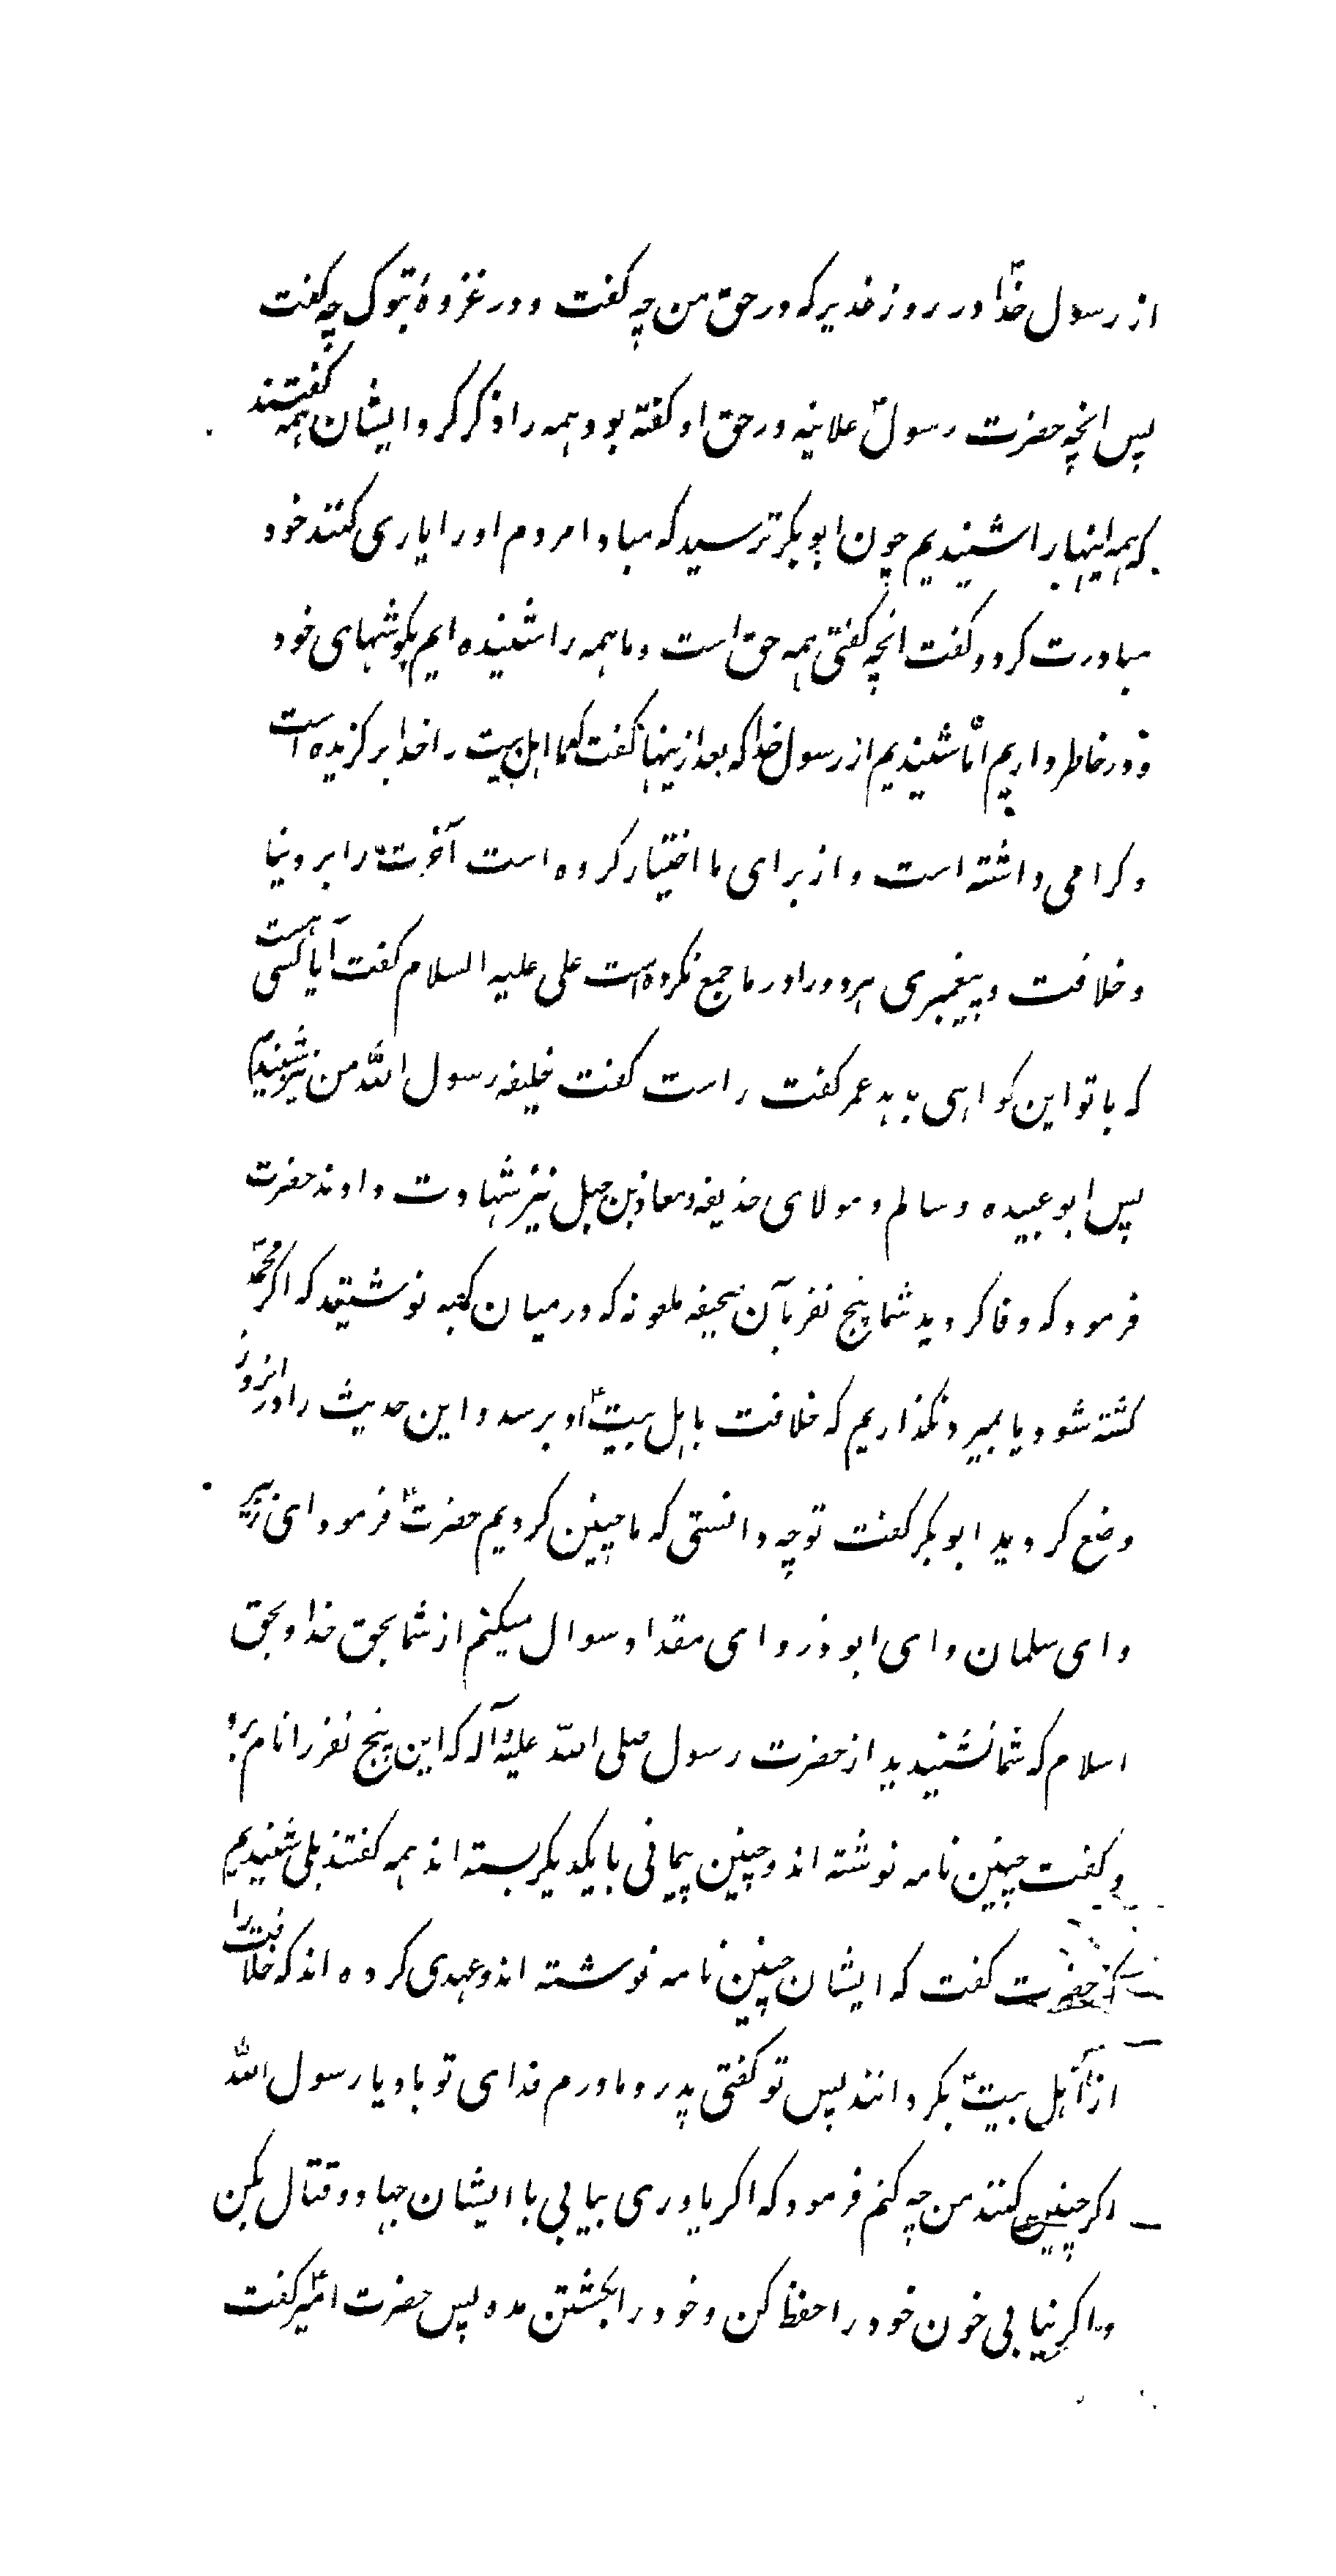 از رسول خداؐ در روز غدیر که در حق من چه گفت و در غزوهٔ تبوک چه گفت
پس انچه حضرت رسولؐ علانیه در حق او گفته بود همه را ذکر کرد ایشان همه گفتند
که همه اینها را شنیدیم چون ابوبکر ترسید که مبادا مردم او را یاری کنند خود
مبادرت کرد و گفت انچه گفتی همه حق است و ما همه را شنیده ایم بگوشهای خود
و در خاطر داریم امّا شنیدیم از رسول خدا که بعد ازینها گفت که ما اهل بیت را خدا برگزیده است
و گرامی داشته است و از برای ما اختیار کرده است آخرت را بر دنیا
و خلافت و پیغمبری هر دو را در ما جمع نکرده است علی علیه السلام گفت آیا کسی هست
که با تو این گواهی بدهد عمر گفت راست گفت خلیفه رسول اللّه من نیز شنیدم
پس ابوعبیده و سالم و مولای حذیفه و معاذ بن جبل نیز شهادت دادند حضرت
فرمود که وفا کردید شما پنج نفر بآن صحیفه ملعونه که در میان کعبه نوشتید که اگر محمّدؐ
کشته شود یا بمیرد نگذاریم که خلافت باهل بیتؑ او برسد و این حدیث را در انروز
وضع کردید ابوبکر گفت تو چه دانستی که ما چنین کردیم حضرتؑ فرمود ای زبیر
و ای سلمان و ای ابوذر و ای مقداد سوال میکنم از شما بحق خدا و بحق
اسلام که شما نشنیدید از حضرت رسول صلی اللّه علیه و آله که این پنج نفر را نام برد
و گفت چنین نامه نوشته اند و چنین پیمانی با یکدیگر بسته اند همه گفتند بلی شنیدیم
که حضرت گفت که ایشان چنین نامه نوشته اند و عهدی کرده اند که خلافت را
از اهل بیتؑ بگردانند پس تو گفتی پدر و مادرم فدای تو باد یا رسول اللّه
اگر چنین کنند من چه کنم فرمود که اگر یاوری بیابی با ایشان جهاد و قتال بکن
و اگر نیابی خون خود را حفظ کن و خود را بکشتن مده پس حضرت امیرؑ گفت